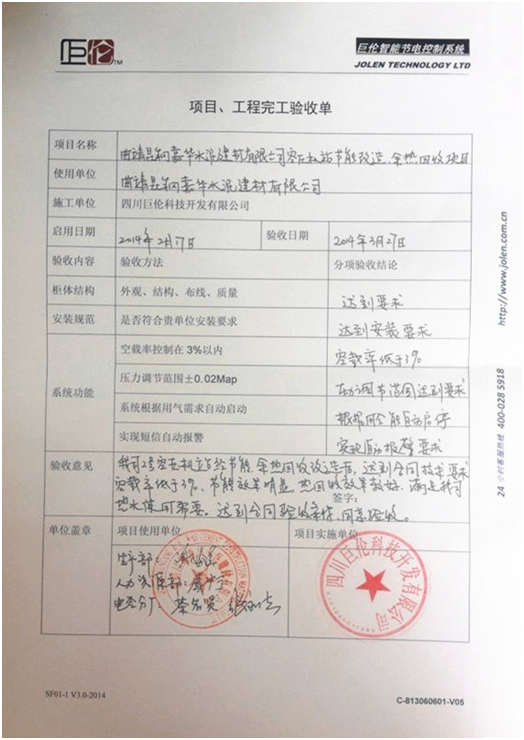 巨伦 TM
巨伦智能节电控制系统
JOLEN TECHNOLOGY LTD
项目、工程完工验收单
项目名称 曲靖昆钢嘉华水泥建材有限公司空压机站节能改造、余热回收项目
使用单位 曲靖昆钢嘉华水泥建材有限公司
施工单位 四川巨伦科技开发有限公司
启用日期 2014年2月17日 验收日期 2014年3月27日
验收内容 验收方法 分项验收结论
柜体结构 外观、结构、布线、质量 达到要求
安装规范 是否符合贵单位安装要求 达到安装要求
系统功能
空载率控制在3%以内 空载率低于3%
压力调节范围±0.02Map 压力调节范围达到要求
系统根据用气需求自动启动 根据用气能自动启停
实现短信自动报警 实现自动报警要求
验收意见 我司2#空压机站经节能、余热回收改造后,达到合同技术要求
空载率低于3%、节能效果明显,热回收效果较好,满足我司
热水使用需要。达到合同验收条件,同意验收。
签字:
单位盖章 项目使用单位 项目实施单位
生产部:
人力资源部:
电气分厂
四川巨伦科技开发有限公司
http://www.jolen.com.cn
24 小时客服热线 400-028 5918
SF01-1 V3.0-2014
C-813060601-V05